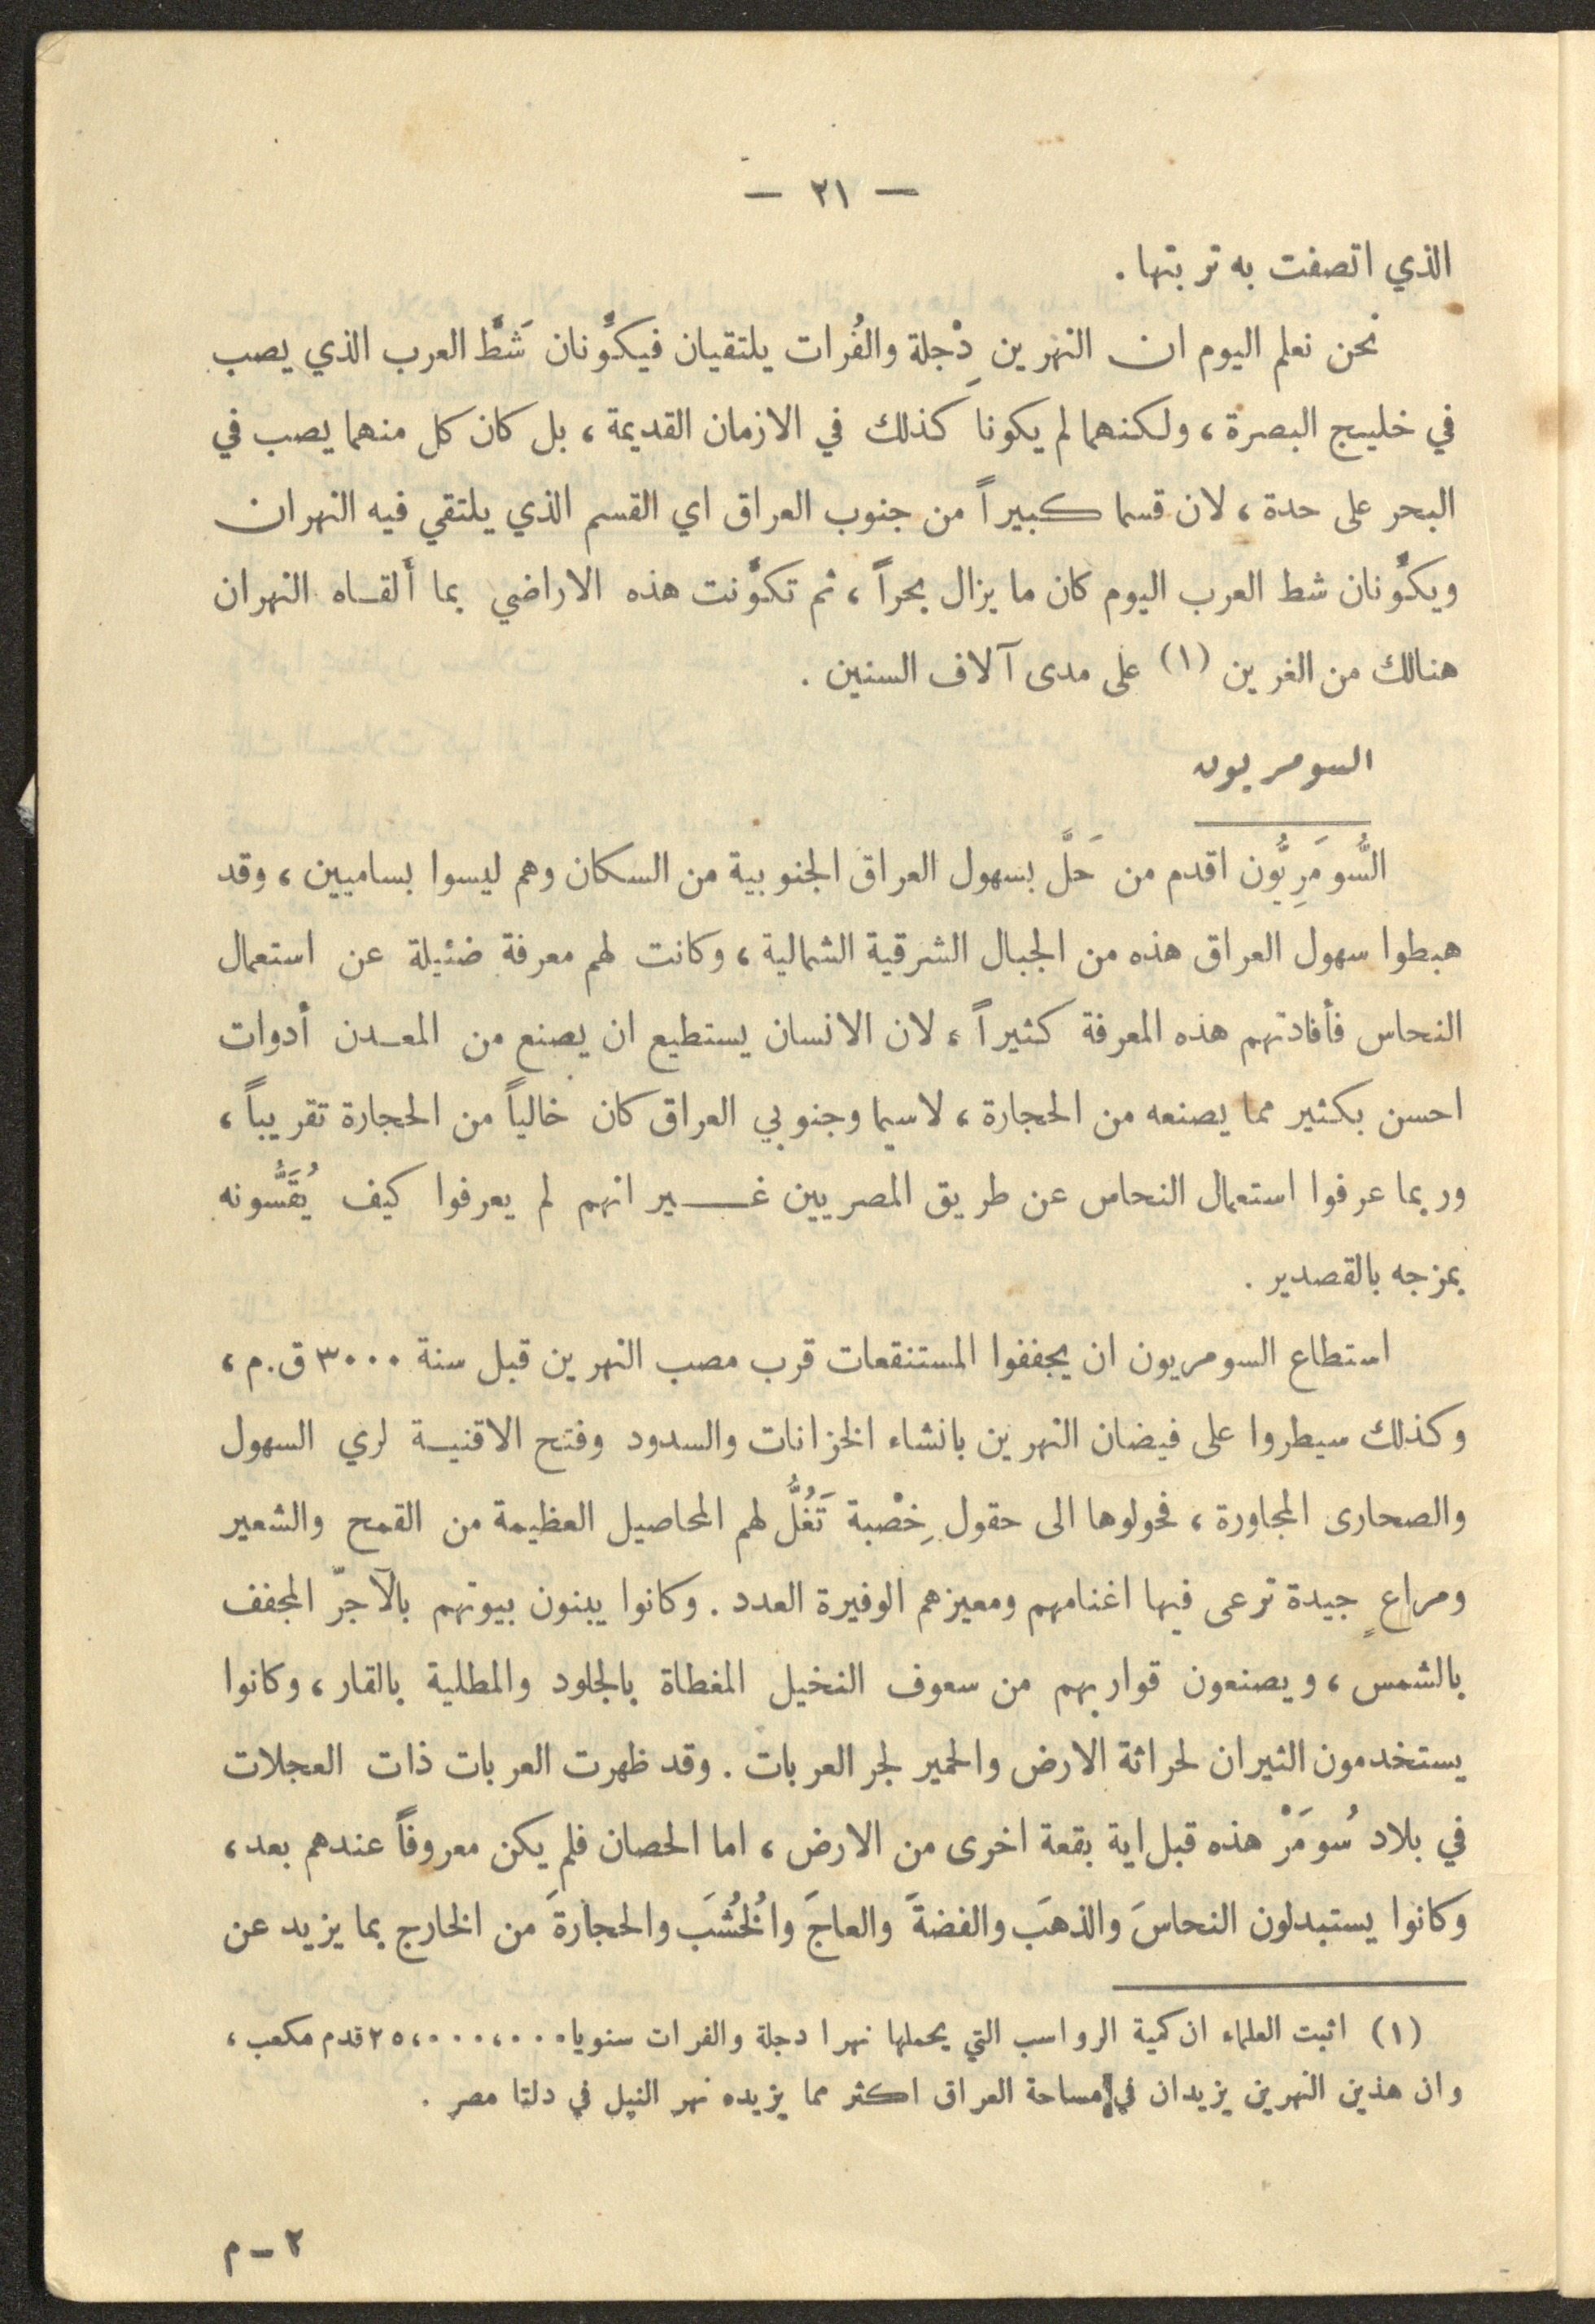 — ٢١ —
الذي اتصفت به تربتها .
نحن نعلم اليوم ان النهرين دِجْلة والفُرات يلتقيان فيكوِّنان شَطَّ العرب الذي يصب
في خليج البصرة ، ولكنهما لم يكونا كذلك في الازمان القديمة ، بل كان كل منهما يصب في
البحر على حدة ، لان قسما كبيراً من جنوب العراق اي القسم الذي يلتقي فيه النهران
ويكوِّنان شط العرب اليوم كان ما يزال بحراً ، ثم تكوَّنت هذه الاراضي بما ألقاه النهران
هنالك من الغرين (١) على مدى آلاف السنين .
السومريون
السُّومَرِيُّون اقدم من حَلَّ بسهول العراق الجنوبية من السكان وهم ليسوا بساميين ، وقد
هبطوا سهول العراق هذه من الجبال الشرقية الشمالية ، وكانت لهم معرفة ضئيلة عن استعمال
النحاس فأفادتهم هذه المعرفة كثيراً ، لان الانسان يستطيع ان يصنع من المعدن أدوات
احسن بكثير مما يصنعه من الحجارة ، لاسيما وجنوبي العراق كان خالياً من الحجارة تقريباً ،
وربما عرفوا استعمال النحاس عن طريق المصريين غير انهم لم يعرفوا كيف يُقَسُّونه
بمزجه بالقصدير .
استطاع السومريون ان يجففوا المستنقعات قرب مصب النهرين قبل سنة ٣٠٠٠ ق.م ،
وكذلك سيطروا على فيضان النهرين بانشاء الخزانات والسدود وفتح الاقنية لري السهول
والصحارى المجاورة ، فحولوها الى حقول خِصْبة تَغُلُّ لهم المحاصيل العظيمة من القمح والشعير
ومراعٍ جيدة ترعى فيها اغنامهم ومعيزهم الوفيرة العدد . وكانوا يبنون بيوتهم بالآجرّ المجفف
بالشمس ، ويصنعون قواربهم من سعوف النخيل المغطاة بالجلود والمطلية بالقار ، وكانوا
يستخدمون الثيران لحراثة الارض والحمير لجر العربات . وقد ظهرت العربات ذات العجلات
في بلاد سُومَرْ هذه قبل اية بقعة اخرى من الارض ، اما الحصان فلم يكن معروفاً عندهم بعد ،
وكانوا يستبدلون النحاسَ والذهبَ والفضةَ والعاجَ والخُشُبَ والحجارةَ من الخارج بما يزيد عن
(١) اثبت العلماء ان كمية الرواسب التي يحملها نهرا دجلة والفرات سنويا ٢٥،٠٠٠،٠٠٠ قدم مكعب ،
وان هذين النهرين يزيدان في مساحة العراق اكثر مما يزيده نهر النيل في دلتا مصر .
٢ - م